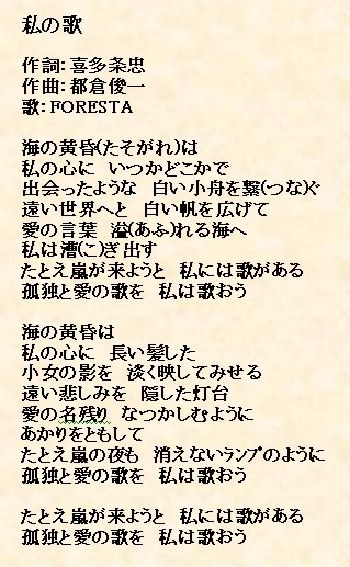 私の歌
作詞：喜多条忠
作曲：都倉俊一
歌：FORESTA
海の黄昏(たそがれ)は
私の心に　いつかどこかで
出会ったような　白い小舟を繋(つな)ぐ
遠い世界へと　白い帆を広げて
愛の言葉　溢(あふ)れる海へ
私は漕(こ)ぎ出す
たとえ嵐が来ようと　私には歌がある
孤独と愛の歌を　私は歌おう
海の黄昏は
私の心に　長い髪した
少女の影を　淡く映してみせる
遠い悲しみを　隠した灯台
愛の名残り　なつかしむように
あかりをともして
たとえ嵐の夜も　消えないﾗﾝﾌﾟのように
孤独と愛の歌を　私は歌おう
たとえ嵐が来ようと　私には歌がある
孤独と愛の歌を　私は歌おう